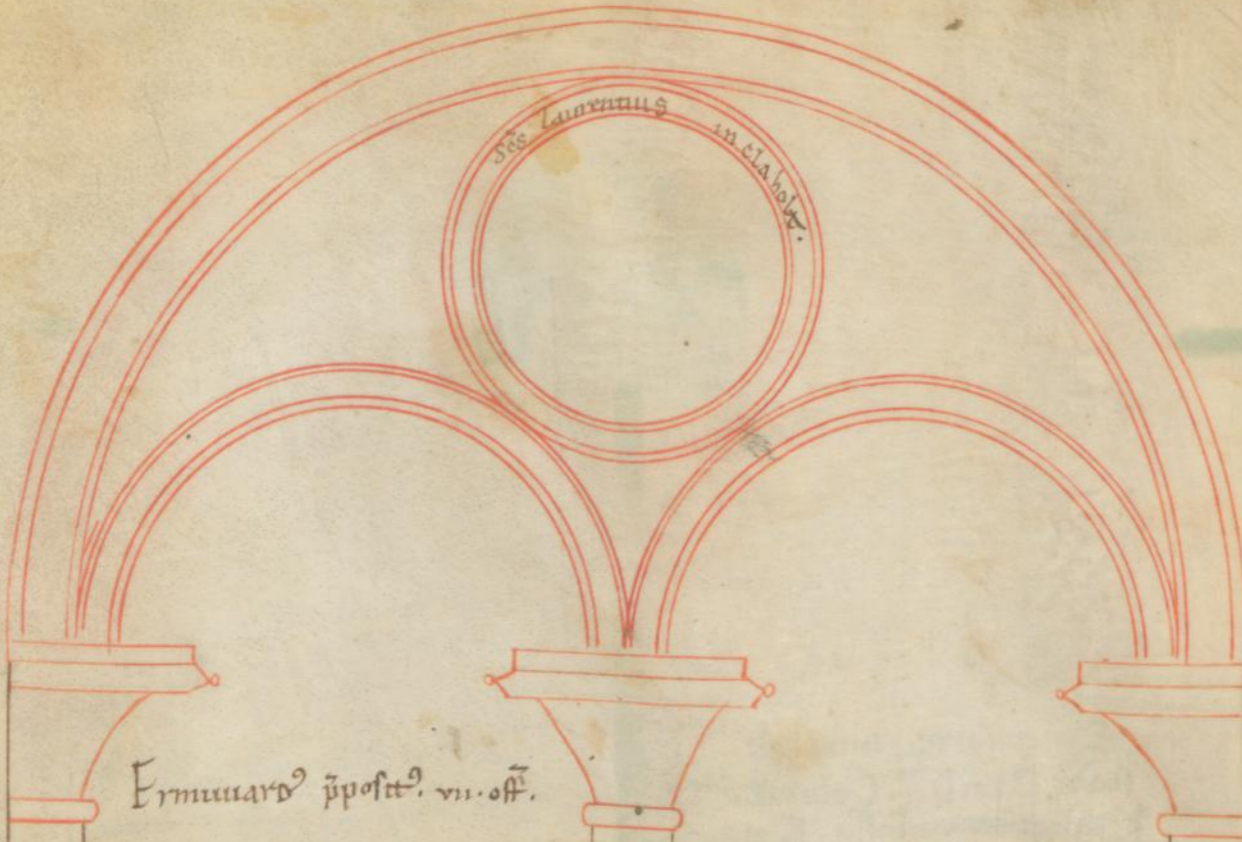 sc̄s laurentius in claholt.
Ermuuard⁹ p̄posit⁹. vii. off̄.